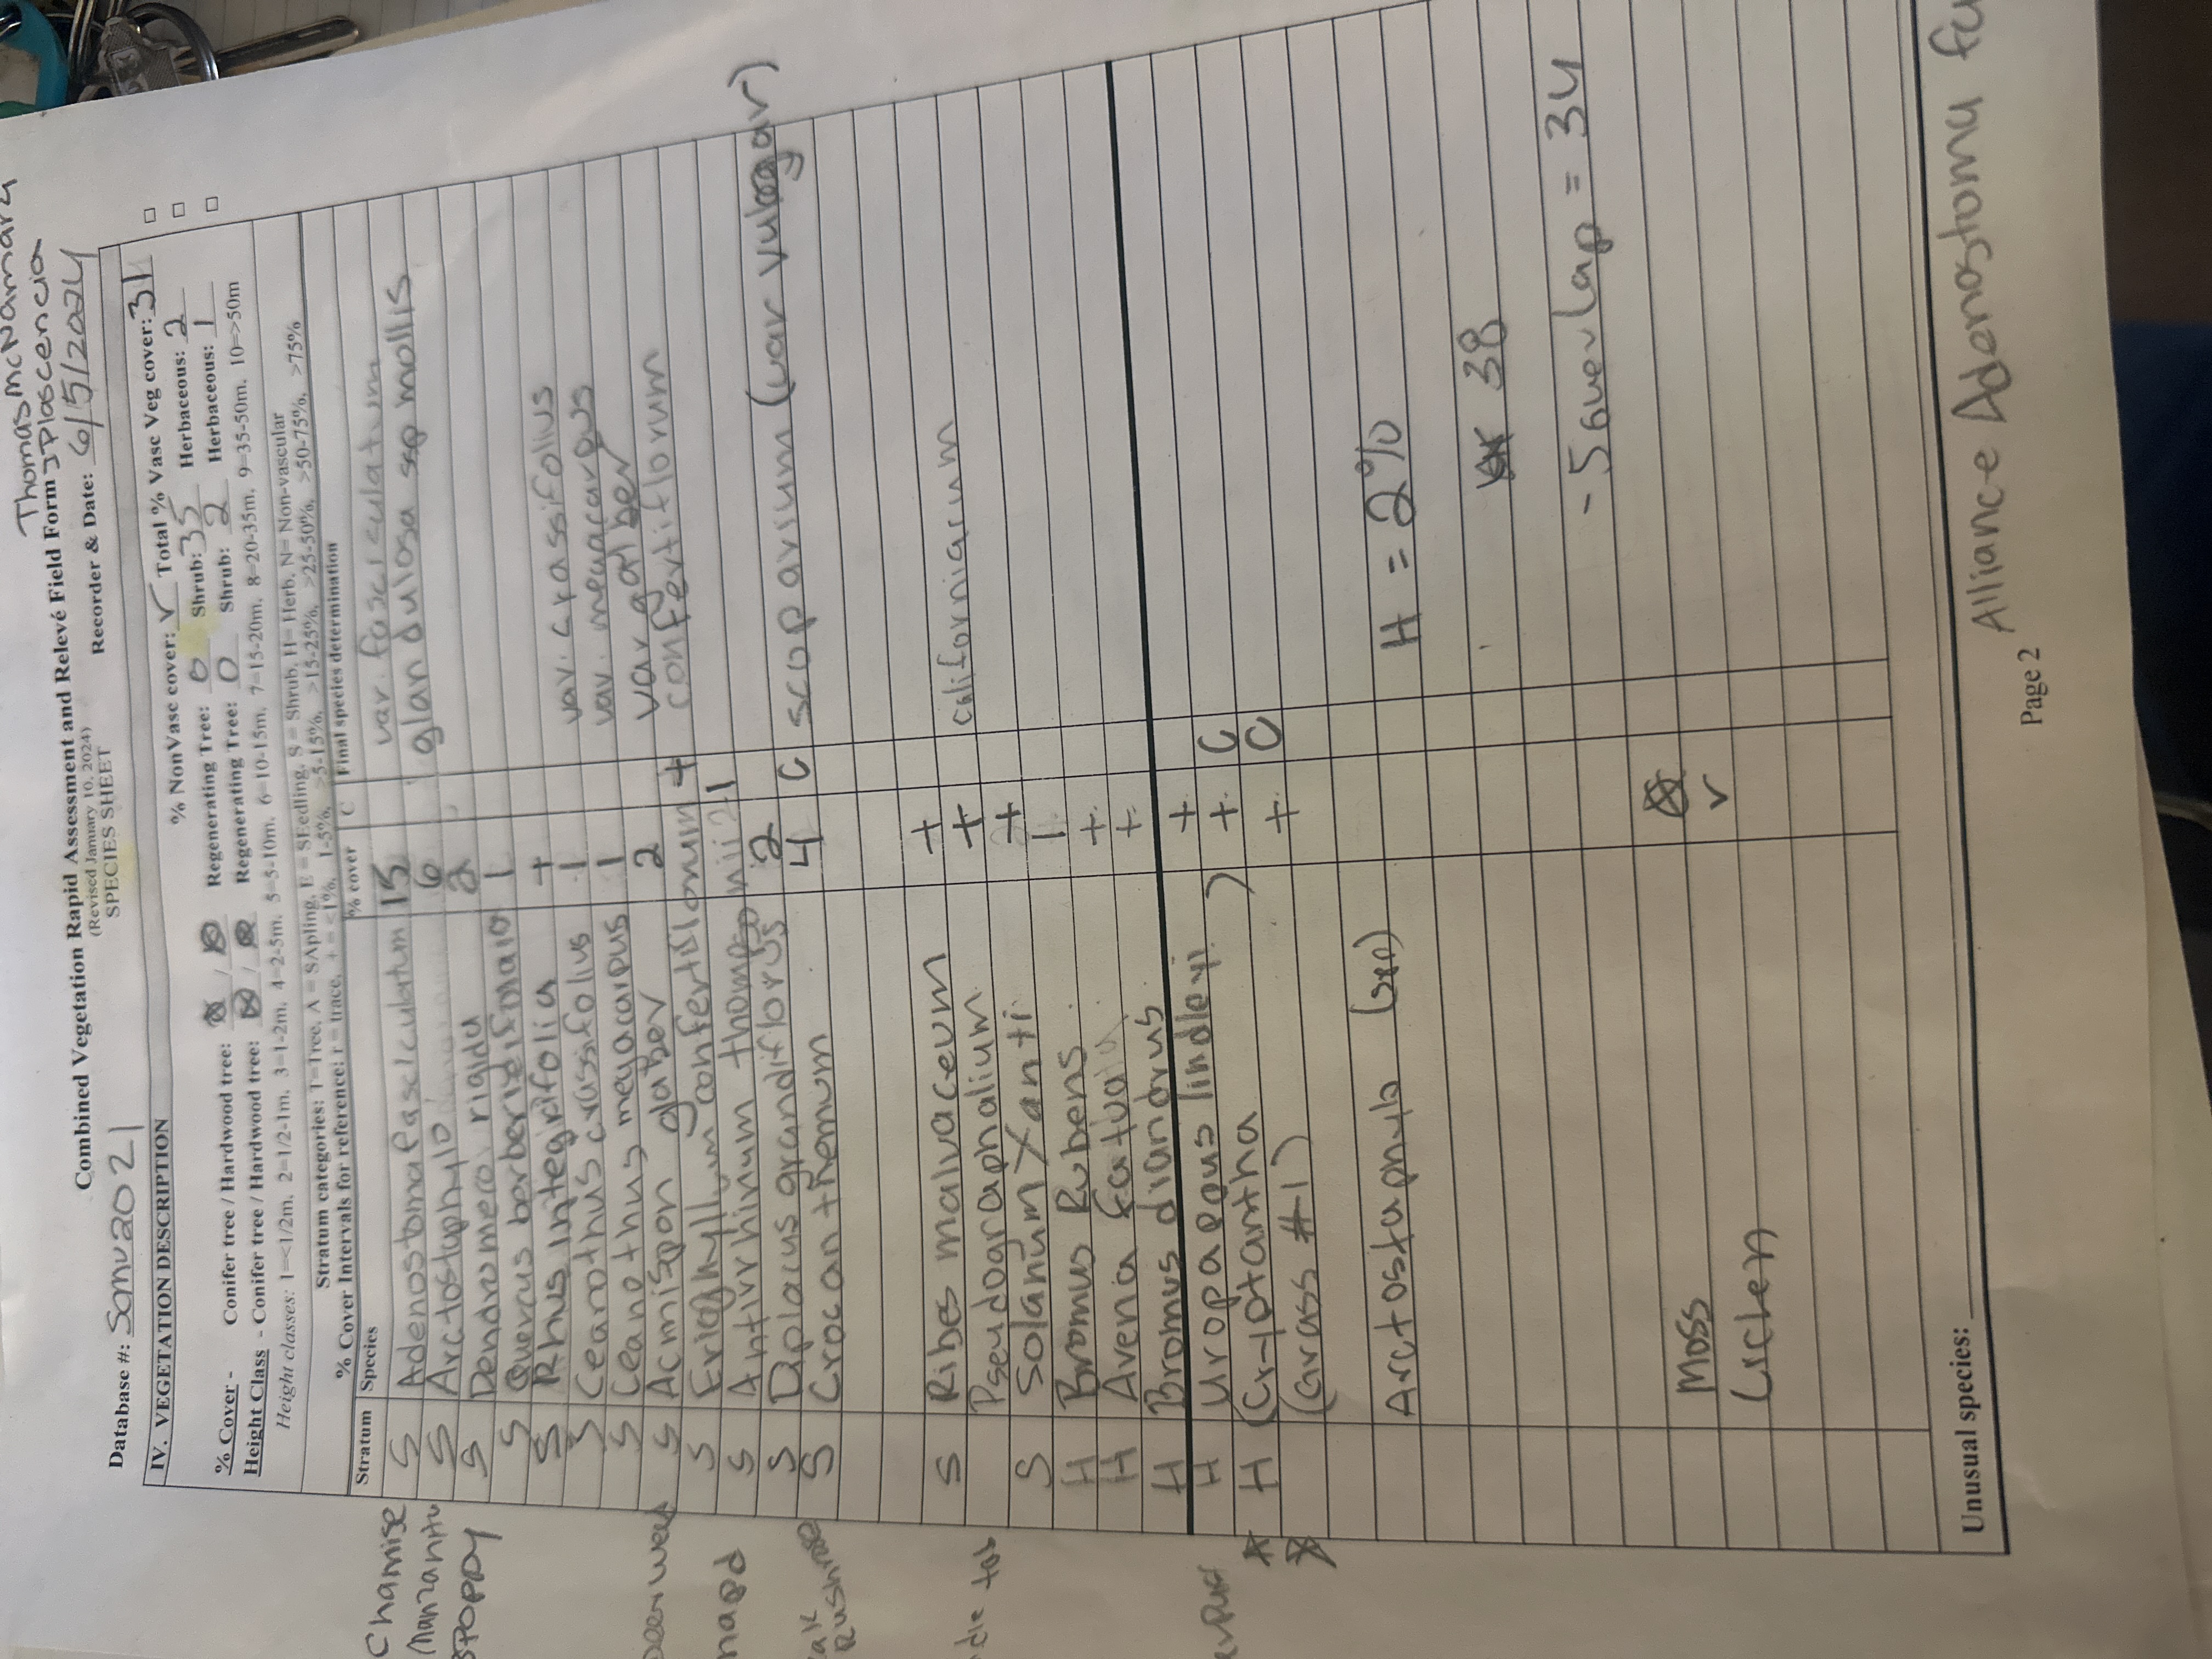 Thomas McNamara
Combined Vegetation Rapid Assessment and Relevé Field Form JPlascencia
(Revised January 10, 2024)
SPECIES SHEET
Database #: Samva021
Recorder & Date: 6/5/2024
IV. VEGETATION DESCRIPTION
% NonVasc cover: r Total % Vasc Veg cover: 31
% Cover - Conifer tree / Hardwood tree: / Regenerating Tree: 0 Shrub: 35 Herbaceous: 2
Height Class - Conifer tree / Hardwood tree: / Regenerating Tree: 0 Shrub: 2 Herbaceous: 1
Height classes: 1=<1/2m, 2=1/2-1m, 3=1-2m, 4=2-5m, 5=5-10m, 6=10-15m, 7=15-20m, 8=20-35m, 9=35-50m, 10=>50m
Stratum categories: T=Tree, A = SApling, E = SEedling, S = Shrub, H= Herb, N= Non-vascular
% Cover Intervals for reference: r = trace, + = <1%, 1-5%, >5-15%, >15-25%, >25-50%, >50-75%, >75%
Stratum Species % cover C Final species determination
Chamise S Adenostoma fasciculatum 15 var. fasciculatum
Manzanita S Arctostaphylo 6 glandulosa ssp mollis
S Dendromecon rigida 2
S Quercus berberidifolia 1
S Rhus integrifolia +
S Ceanothus crassifolius 1 var. crassifolius
S Ceanothus megacarpus 1 var. megacarpus
Deerweed S Acmispon glaber 2 var glaber
S Eriophyllum confertiflorum + confertiflorum
S Antirrhinum 1
S Diplacus grandiflorus 2
S Crocanthemum 4 C scoparium (var vulgar)
Rushrose
S Ribes malvaceum +
Pseudognaphalium + californiacum
S Solanum Xanti +
H Bromus Rubens 1
H Avena fatua +
H Bromus diandrus +
H Uropappus lindleyi +
H (Cryptantha ) + C
(Grass #1) + C
Arctostaphylo
H = 2%
38
- 5 overlap = 34
Moss
Lichen r
Unusual species:
Page 2
Alliance Adenostoma